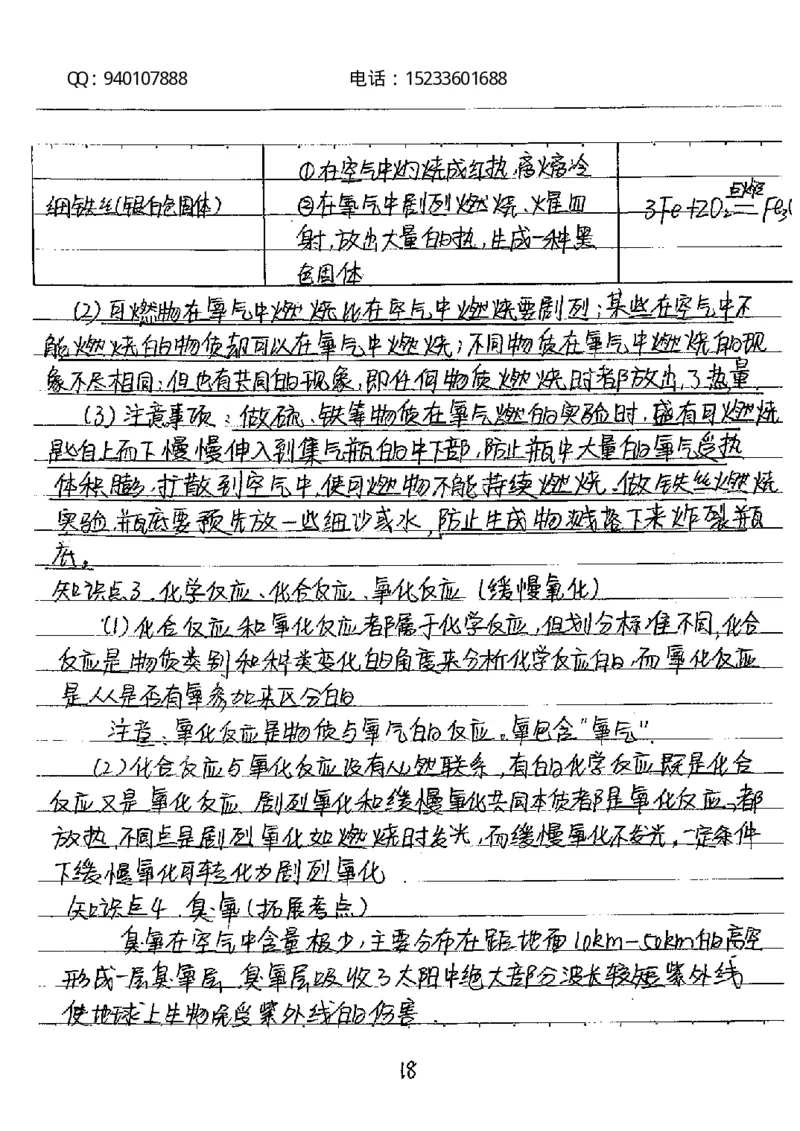 QQ：940107888 电话：15233601688
①在空气中灼烧成红热,离火熄冷
细铁丝(银白色固体) ②在氧气中剧列燃烧、火星四 3Fe+2O₂ 点燃 Fe₃
射,放出大量的热,生成一种黑
色固体
(2)可燃物在氧气中燃烧比在空气中燃烧要剧列;某些在空气中不
能燃烧的物质却可以在氧气中燃烧;不同物质在氧气中燃烧的现
象不尽相同;但也有共同的现象,即任何物质燃烧时都放出了热量.
(3)注意事项:做硫、铁等物质在氧气燃的实验时,盛有可燃烧
匙自上而下慢慢伸入到集气瓶的中下部,防止瓶中大量的氧气受热
体积膨,扩散到空气中,使可燃物不能持续燃烧。做铁丝燃烧
实验,瓶底要预先放一些细沙或水,防止生成物溅落下来炸裂瓶
底。
知识点3.化学反应、化合反应、氧化反应(缓慢氧化)
(1)化合反应和氧化反应都属于化学反应,但划分标准不同,化合
反应是物质类别和种类变化的角度来分析化学反应的,而氧化反应
是从是否有氧参加来区分的
注意:氧化反应是物质与氧气的反应。氧包含"氧气".
(2)化合反应与氧化反应没有必然联系,有的化学反应既是化合
反应又是氧化反应.剧列氧化和缓慢氧化共同本质都是氧化反应,都
放热,不同点是剧列氧化如燃烧时发光,而缓慢氧化不发光,一定条件
下缓慢氧化可转化为剧列氧化.
知识点4.臭氧(拓展考点)
臭氧在空气中含量极少,主要分布在距地面10km—50km的高空
形成一层臭氧层,臭氧层吸收了太阳中绝大部分波长较短紫外线
使地球上生物免受紫外线的伤害.
18